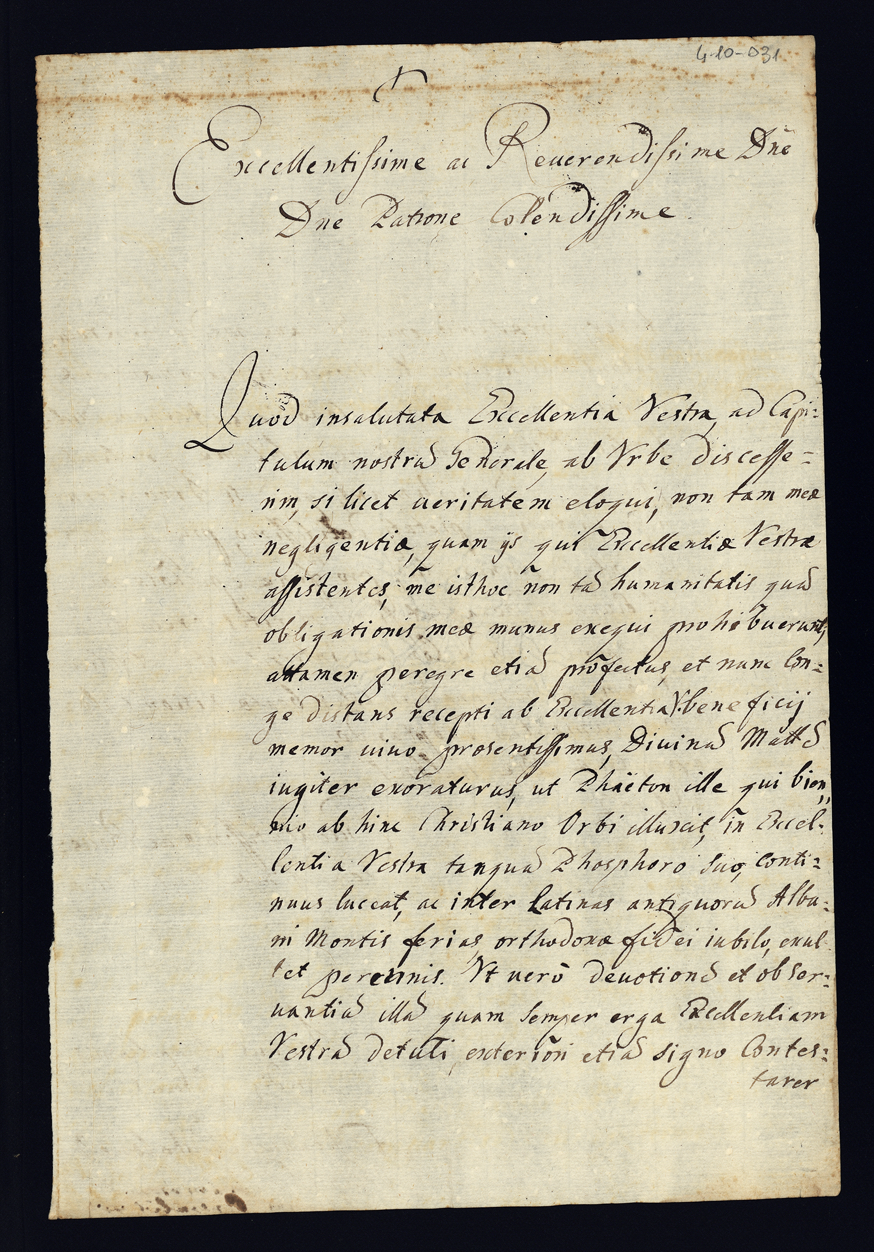 4-10-031
Excellentissime ac Reuerendissime Dne
Dne Patrone Colendissime
Quod insalutata Excellentia Vestra, ad Capi=
tulum nostrũ Generale, ab Vrbe discesse=
rim, si licet ueritatem eloqui, non tam meæ
negligentiæ, quam ijs qui Excellentiæ Vestræ
assistentes, me isthoc non tã humanitatis quã
obligationis meæ munus exequi prohibuerunt,
attamen peregre etiã profectus, et nunc lon=
ge distans recepti ab Excellentia V: beneficij
memor uiuo præsentissimus, Diuinã Mattẽ
iugiter exoraturus, ut Phaëton ille qui bien„
nio ab hinc Christiano Orbi illuxit, in Excel=
lentia Vestra tanquã Phosphoro suo, conti=
nuus luceat, ac inter Latinas antiquorũ Alba=
ni Montis ferias, orthodoxæ fidei iubilo, exul=
tet perennis. Vt uerò deuotionẽ et obser=
uantiã illã quam semper erga Excellentiam
Vestrã detuli exteriori etiã signo Contes=
tarer